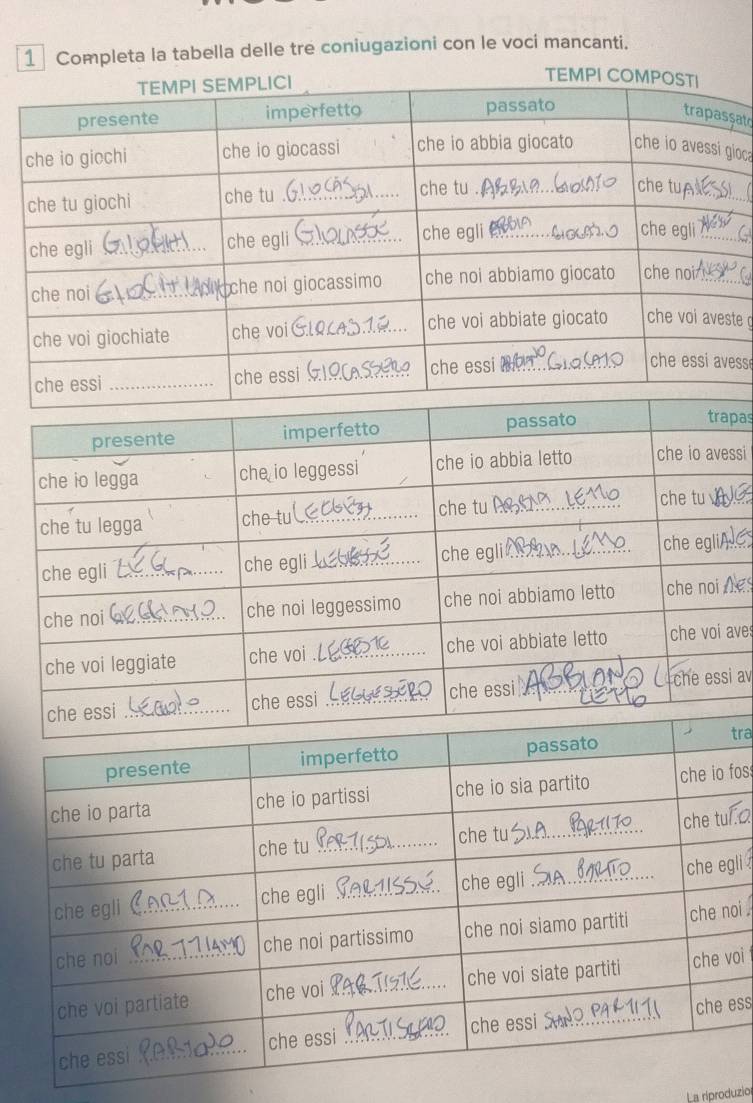 1 Completa la tabella delle tre coniugazioni con le voci mancanti.
TEMPI SEMPLICI TEMPI COMPOSTI
presente imperfetto passato trapassato
che io giochi che io giocassi che io abbia giocato che io avessi gioca
che tu giochi che tu GIOCASSI che tu ABBIA GIOCATO che tu AVESSI
che egli GIOCHI che egli GIOCASSE che egli ABBIA GIOCATO che egli
che noi che noi giocassimo che noi abbiamo giocato che noi
che voi giochiate che voi che voi abbiate giocato che voi aveste g
che essi che essi GIOCASSERO che essi ABBIANO GIOCATO che essi avesse
presente imperfetto passato trapas
che io legga che io leggessi che io abbia letto che io avessi
che tu legga che tu che tu ABBIA LETTO che tu
che egli che egli che egli ABBIA LETTO che egli
che noi che noi leggessimo che noi abbiamo letto che noi
che voi leggiate che voi che voi abbiate letto che voi aves
che essi che essi LEGGESSERO che essi ABBIANO che essi av
LETTO
presente imperfetto passato tra
che io parta che io partissi che io sia partito che io foss
che tu parta che tu PARTISSI che tu SIA PARTITO che tu FO
che egli PARTA che egli PARTISSE che egli SIA che egli
che noi PARTIAMO che noi partissimo che noi siamo partiti che noi
che voi partiate che voi PARTISTE che voi siate partiti che voi
che essi PARTONO che essi PARTISSERO che essi SIANO PARTITI che ess
La riproduzion